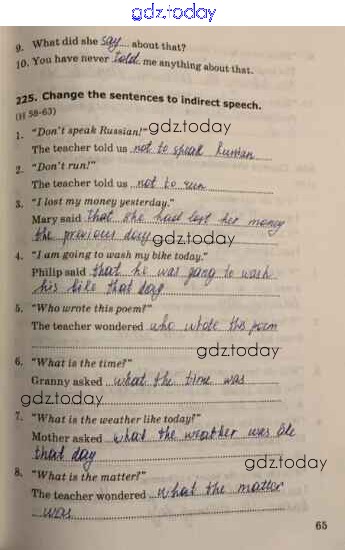 gdz.today
9. What did she say about that?
10. You have never told me anything about that.
225. Change the sentences to indirect speech.
(§§ 58-63)
1. "Don't speak Russian!" gdz.today
The teacher told us not to speak Russian
2. "Don't run!"
The teacher told us not to run
3. "I lost my money yesterday."
Mary said that she had lost her money
the previous day gdz.today
4. "I am going to wash my bike today."
Philip said that he was going to wash
his bike that day
5. "Who wrote this poem?" gdz.today
The teacher wondered who wrote this poem
gdz.today
6. "What is the time?"
Granny asked what the time was
gdz.today
7. "What is the weather like today?"
Mother asked what the weather was
that day gdz.today
8. "What is the matter?"
The teacher wondered what the matter
was
65
gdz.today